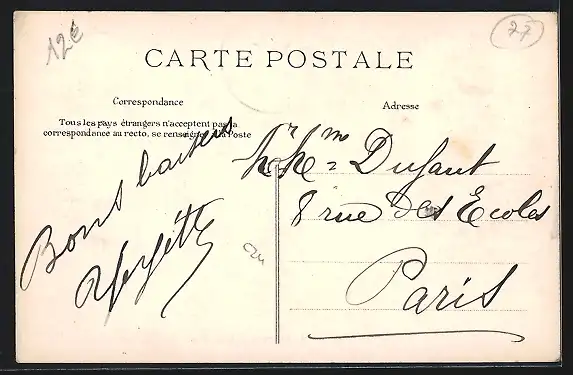 12€
27
CARTE POSTALE
Correspondance
Tous les pays étrangers n'acceptent pas la
correspondance au recto, se renseigner à la Poste
Bons baisers
Adresse
Dufant
8 rue des Ecoles
Paris